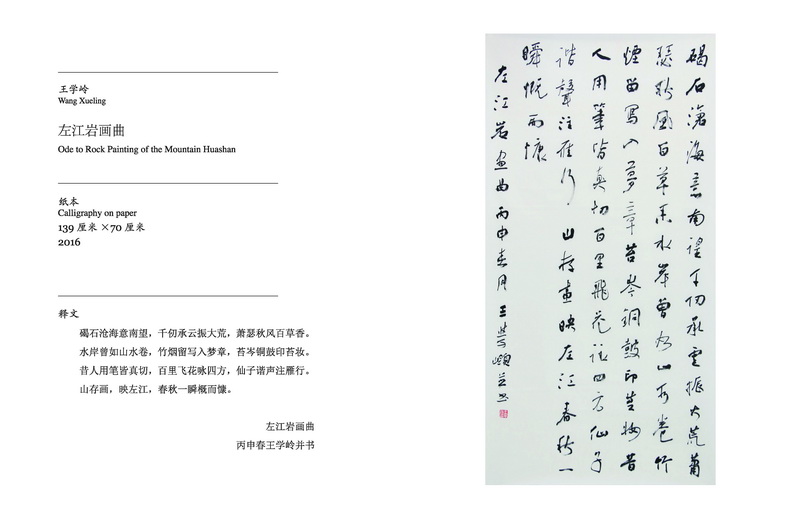 王学岭
Wang Xueling
左江岩画曲
Ode to Rock Painting of the Mountain Huashan
纸本
Calligraphy on paper
139 厘米 ×70 厘米
2016
释文
碣石沧海意南望，千仞承云振大荒，萧瑟秋风百草香。
水岸曾如山水卷，竹烟留写入梦章，苔岑铜鼓印苔妆。
昔人用笔皆真切，百里飞花咏四方，仙子谐声注雁行。
山存画，映左江，春秋一瞬慨而慷。
左江岩画曲
丙申春王学岭并书
碣石滄海意南望千仞承雲振大荒蕭
瑟秋風百草香水岸曾如山水卷竹
煙留寫入夢章苔岑銅鼓印苔妝昔
人用筆皆真切百里飛花詠四方仙子
諧聲注雁行山存畫映左江春秋一
瞬慨而慷
左江岩畫曲丙申春月王學嶺並書